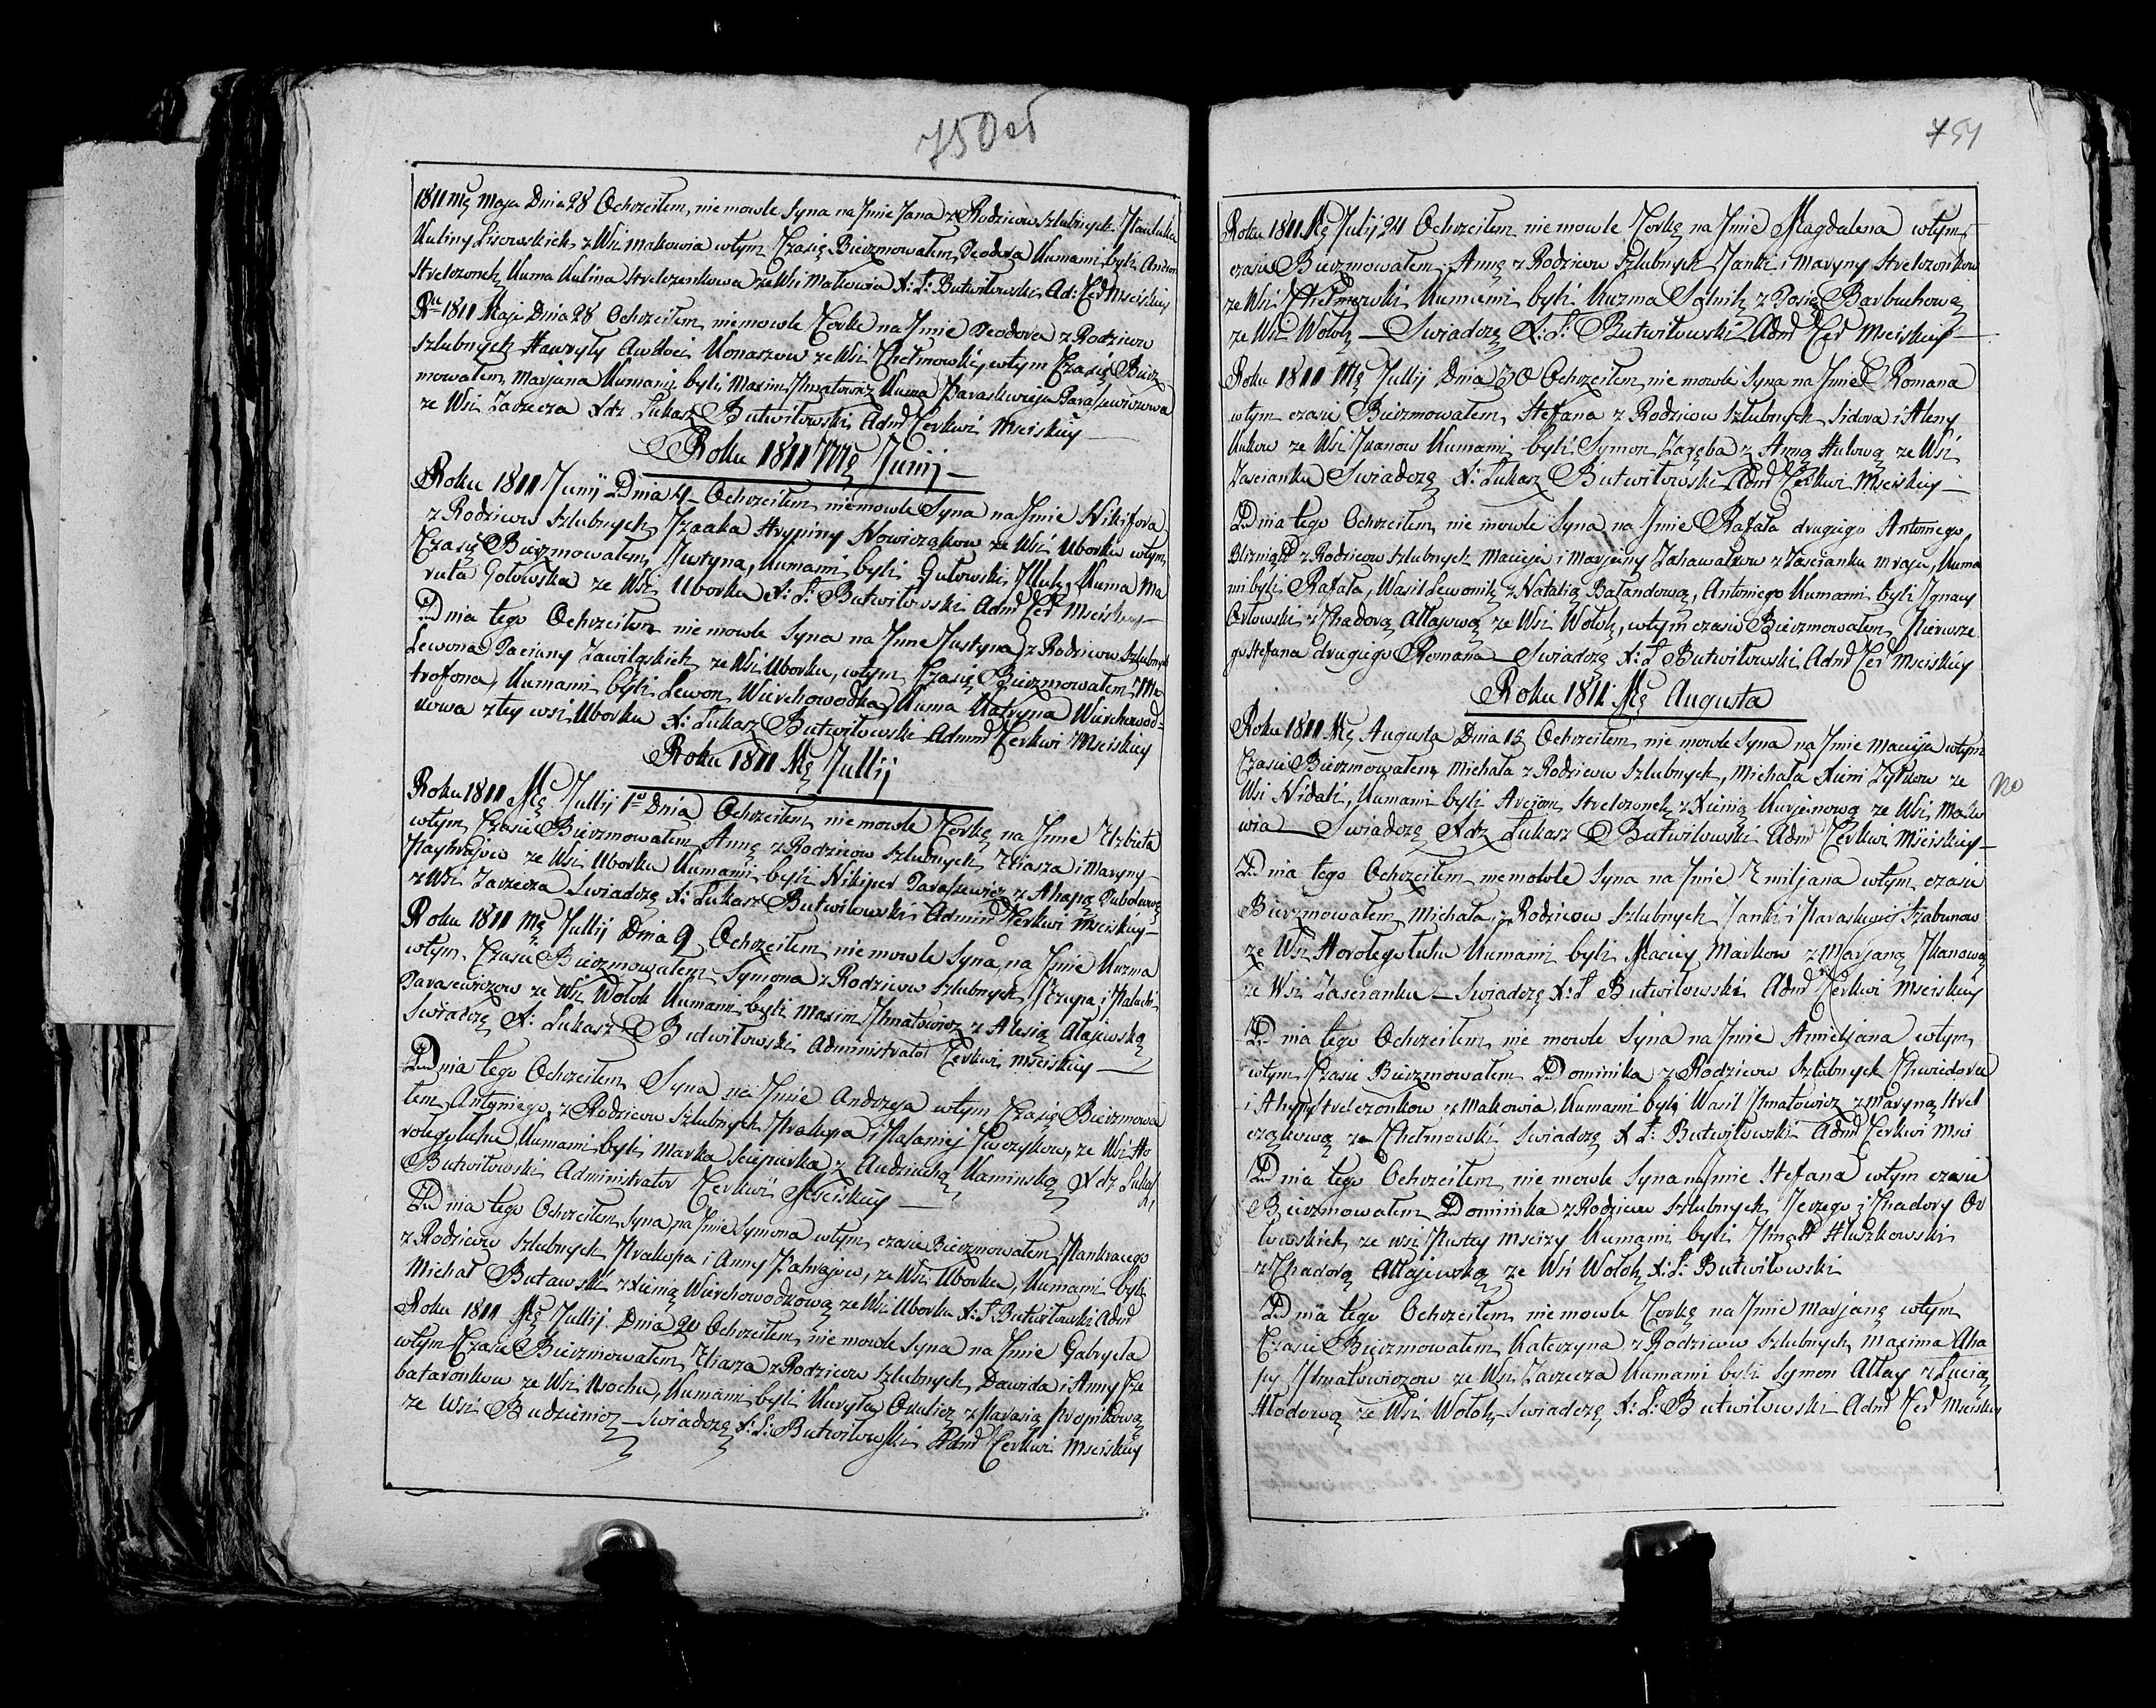 750 об
1811 Mę Maja Dnia 28 Ochrzciłem niemowle Syna na Jmie Jana z Rodzicow szlubnych Pawluka
Kuliny Lisowskich z Wsi Makowia wtym Czasię Bierzmowałem Teodora Kumami byli Anton
Strelczonek Kuma Kulina Strelczonkowa ze Wsi Makowia X: Ł: Butwiłowski Ad: Cer Msciskiey
Ru 1811 Maja Dnia 28 Ochrzciłem niemowle Corke na Jmie Teodora z Rodzicow
szlubnych Hawryły Awdoci Konaszow ze Wsi Chełmowki, wtym Czasię Bierz
mowałem Marjana Kumami byli Maxim Jhnatowicz Kuma Paraskiewja Paraszewiczowa
ze Wsi Zarzecza Xdz Łukasz Butwiłowski Admr Cerkwi Msciskiey
Roku 1811 Mę Junij
Roku 1811 Junij Dnia 4 Ochrzciłem niemowle Syna na Jmie Nikifora
z Rodzicow szlubnych Jzaaka Hrypiny Nowicząkow ze Wsi Uborku wtym
Czasię Bierzmowałem Justyna, Kumami byli Gutowski Kuma Ma
ruta Gołowska ze Wsi Uborku X: Ł: Butwiłowski Admr Cer Msciskiey
Dnia tego Ochrzciłem niemowle Syna na Jmie Justyna z Rodzicow szlubnych
Lewona Taciany Zawiląskich ze Wsi Uborku, wtym Czasię Bierzmowałem Me
trofona, Kumami byli Lewon Wierchowodka Kuma Katryna Wierchowod-
kowa z tey wsi Uborku X: Łukasz Butwiłowski Admr Cerkwi Msciskiey
Roku 1811 Mę Jullij
Roku 1811 Mę Jullij 1o Dnia Ochrzciłem niemowle Corkę na Jmie Elzbieta
wtym Czasie Bierzmowałem Annę z Rodzicow szlubnych Eliasza i Maryny
ze Wsi Uborku Kumami byli Nikiper Paraszewicz z Ahapą Dubolewą
z Wsi Zarzecza Swiadczę X: Łukasz Butwiłowski Admin Cerkwi Msciskiey
Roku 1811 Mę Jullij Dnia 9 Ochrzciłem niemowle Syna na Jmie Kuzma
wtym Czasie Bierzmowałem Symona z Rodzicow szlubnych i
Parasewiczow ze Wsi Wołok Kumami byli Maxim Jhnatowicz z Alesią Ałajewską
Swiadczę X: Łukasz Butwiłowski Administrator Cerkwi Msciskiey
Dnia tego Ochrzciłem Syna na Jmie Andrzeja wtym Czasię Bierzmowa
łem Antyniego z Rodzicow szlubnych Prakopa i ze Wsi Ho
rołegołuhu Kumami byli Marka Scieparka z Audziuchą Kaminską Xdz Łukasz
Butwiłowski Administrator Cerkwi Msciskiey
Dnia tego Ochrzciłem Syna na Jmie Symona wtym czasie Bierzmowałem Pankracego
z Rodzicow szlubnych Prakopa i Anny ze Wsi Uborku, Kumami byli
Michał Buławski z Xienią Wierchowodkową ze Wsi Uborku X: Ł Butwiłowski Admr
Roku 1811 Mę Jullij Dnia 20 Ochrzciłem niemowle Syna na Jmie Gabryela
wtym Czasie Bierzmowałem Eliasza z Rodzicow szlubnych Dawida i Anny Cze
bataronkow ze Wsi Kumami byli Kuryła Okulicz z Parasią
ze Wsi Budzienicz Swiadczę X: Ł: Butwiłowski Admr Cerkwi Msciskiey
751
Roku 1811 Mę Julij 24 Ochrzciłem niemowle Corkę na Jmie Magdalena wtym
czasie Bierzmowałem Annę z Rodzicow szlubnych Janki i Maryny Strelczonkow
ze Wsi Chełmowki Kumami byli Kuzma Sołnik z Zosią Barbuchową
ze Wsi Wołok Swiadczę X: Ł: Butwiłowski Admr Cer Msciskiey
Roku 1811 Mę Jullij Dnia 30 Ochrzciłem niemowle Syna na Jmie Romana
wtym czasie Bierzmowałem Stefana z Rodzicow szlubnych Sidora i Aleny
Kukow ze Wsi Jwanow Kumami byli Symon Zaręba z Anną Hulową ze Wsi
Zascianku Swiadczę X: Łukasz Butwiłowski Admr Cerkwi Msciskiey
Dnia tego Ochrzciłem niemowle Syna na Jmie Rafała drugiego Antoniego
Blizniąt z Rodzicow szlubnych Macieja i Marjanny Zahawałkow z Zascianku Mraju, Kuma
mi byli Rafała, Wasil Lewonik z Natalią Bałandową, Antoniego Kumami byli Jgnacy
Orłowski z Chadorą Ałłajową ze Wsi Wołok, wtym czasie Bierzmowałem Pierwsze
go Stefana drugiego Romana Swiadczę X: Ł Butwiłowski Admr Cer Msciskiey
Roku 1811 Mę Augusta
Roku 1811 Mę Augusta Dnia 15 Ochrzciłem niemowle Syna na Jmie Macieja wtym
Czasie Bierzmowałem Michała z Rodzicow szlubnych, Michała Xieni Zyłkow ze
Wsi Nidali, Kumami byli Arcjom Strelczonek z Xienią Kurjanową ze Wsi Mako
wia Swiadczę Xdz Łukasz Butwiłowski Admr Cerkwi Msciskiey
No
Dnia tego Ochrzciłem niemowle Syna na Jmie Emiljana wtym czasie
Bierzmowałem Michała z Rodzicow szlubnych Janki i Paraskiewij Szabunow
ze Wsi Horołegołuhu Kumami byli Maciey Markow z Marjaną Jwanową
ze Wsi Zascianku Swiadczę X: Ł Butwiłowski Admr Cerkwi Msciskiey
Dnia tego Ochrzciłem niemowle Syna na Jmie Amieljana wtym
wtym Czasie Bierzmowałem Dominika z Rodzicow szlubnych Chwiedora
i Ahapy Strelczonkow z Makowia, Kumami byli Wasil Jhnatowicz z Maryną Strel
cząkową ze Chełmowki Swiadczę X Ł: Butwiłowski Admr Cerkwi Msci
Dnia tego Ochrzciłem niemowle Syna na Jmie Stefana wtym czasie
Bierzmowałem Dominika z Rodzicow szlubnych Jerzego i Chadory Or
łowskich ze wsi Pustey Mscizy Kumami byli Jhnat Hłuszkowski
z Chadorą Ałłajewską ze Wsi Wołok X: Ł: Butwiłowski
Dnia tego Ochrzciłem niemowle Corkę na Jmie Marjanę wtym
Czasie Bierzmowałem Katerzyna z Rodzicow szlubnych Maxima Aha
py Jhnatowiczow ze Wsi Zarzecza Kumami byli Symon Ałłay z Łucią
Hłodową ze Wsi Wołok Swiadczę X: Ł: Butwiłowski Admr Cer Msciskiey